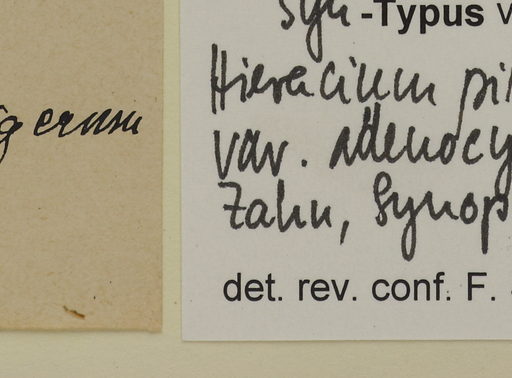 Syn -Typus v
Hieracium pi
var. adenocy
Zahn, Synop
det. rev. conf. F.
igerum